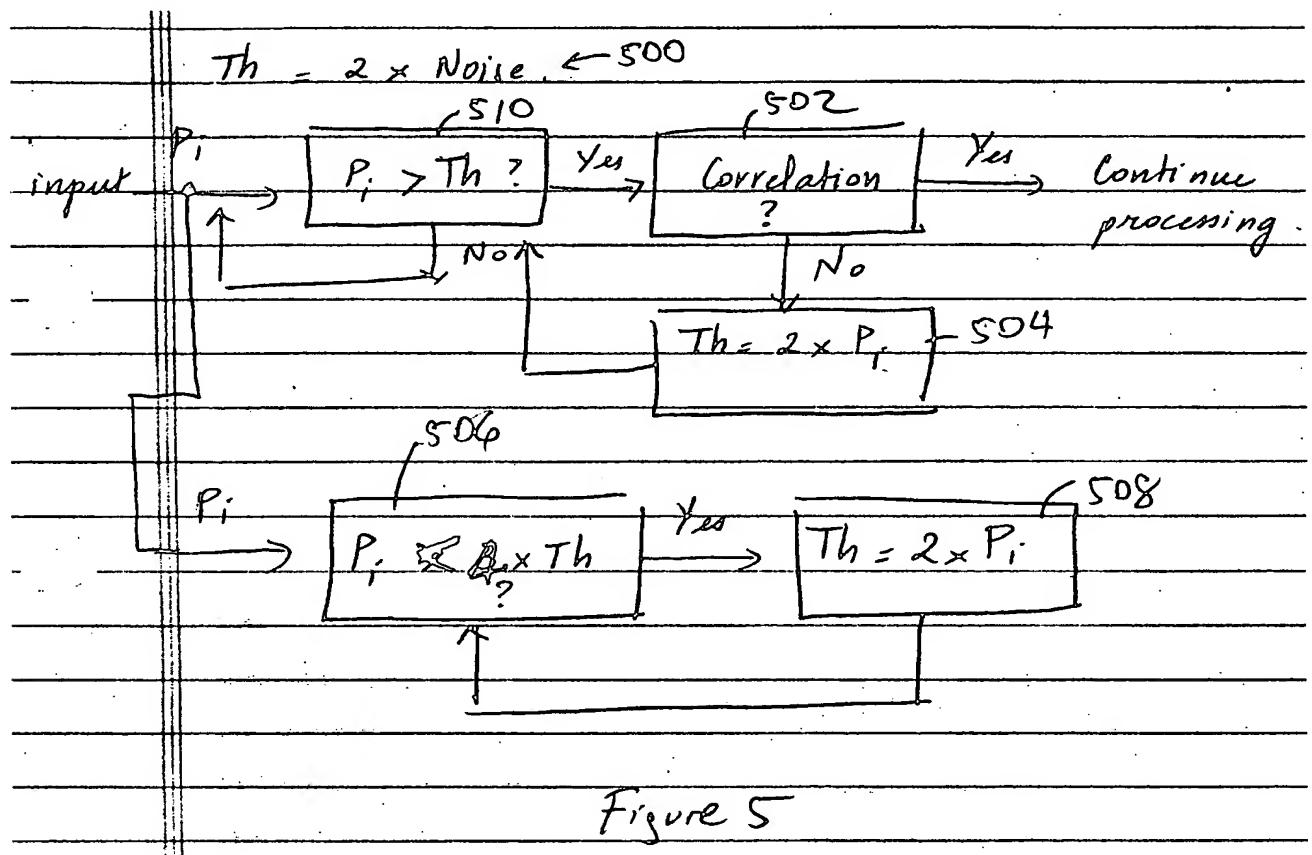 Th = 2 x Noise. ← 500
510
502
Pi
input
Pi > Th ?
Yes
Correlation
?
Yes
Continue
processing.
No
No
Th = 2 x Pi
504
506
508
Pi
Pi < x Th
?
Yes
Th = 2 x Pi
Figure 5